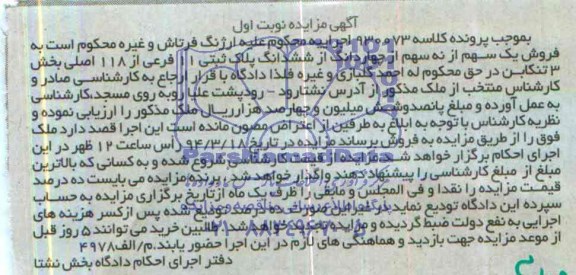 آگهی مزایده نوبت اول
بموجب پرونده کلاسه ۹۳۰۰۷۳ اجراییه محکوم علیه ارژنگ فرتاش و غیره محکوم است به
فروش یک سهم از نه سهم از چهاردانگ از ششدانگ پلاک ثبتی ۱ فرعی از ۱۱۸ اصلی بخش
۳ تنکابن در حق محکوم له احمد گلباری و غیره فلذا دادگاه با قرار ارجاع به کارشناسی صادر و
کارشناس منتخب از ملک مذکور از آدرس نشتارود - رودپشت علیا روبه روی مسجد، کارشناسی
به عمل آورده و مبلغ پانصدوشش میلیون و چهارصد هزارریال ملک مذکور را ارزیابی نموده و
نظریه کارشناس با توجه به ابلاغ به طرفین از اعتراض مصون مانده است این اجرا قصد دارد ملک
فوق را از طریق مزایده به فروش برساند مزایده در تاریخ ۹۴/۳/۱۸ رأس ساعت ۱۲ ظهر در این
اجرای احکام برگزار خواهد شد مزایده از قیمت کارشناسی شروع شده و به کسانی که بالاترین
مبلغ از مبلغ کارشناسی را پیشنهاد دهند واگذار خواهد شد. برنده مزایده می بایست ده درصد
قیمت مزایده را نقدا و فی المجلس و مابقی را ظرف یک ماه از تاریخ برگزاری مزایده به حساب
سپرده این دادگاه تودیع نماید در غیر این صورت ده درصد تودیع شده پس از کسر هزینه های
اجرایی به نفع دولت ضبط گردیده و مزایده تجدید خواهد شد. طالبین خرید می توانند ۵ روز قبل
از موعد مزایده جهت بازدید و هماهنگی های لازم در این اجرا حضور یابند. م/الف ۴۹۷۸
دفتر اجرای احکام دادگاه بخش نشتا